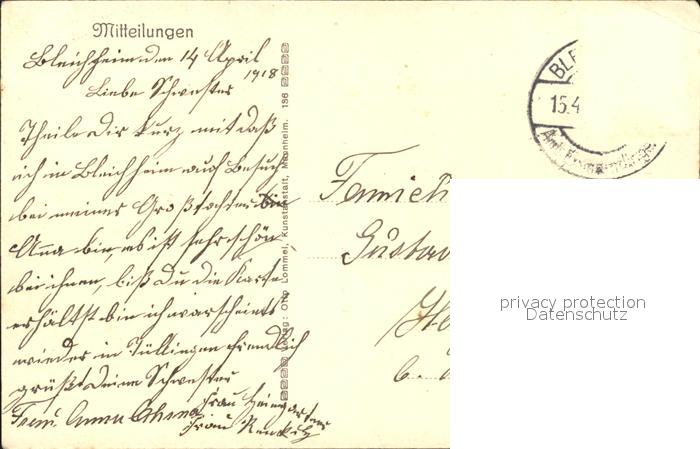 Mitteilungen
Bleichheim den 14 April
1918
Liebe Schwester
Theile Dir kurz mit daß
ich in Bleichheim auf Besuch
bei meiner Großtochter
Anna bin, es ist sehr schön
bei ihnen, biß Du die Karte
erhältst bin ich warscheints
wieder in Tüllingen freundlich
grüßt Deine Schwester
Frau Anna
Frau
Frau
Verlag: Otto Lommel, Kunstanstalt, Mannheim. 136
BLE
15.4
Gustav
privacy protection
Datenschutz